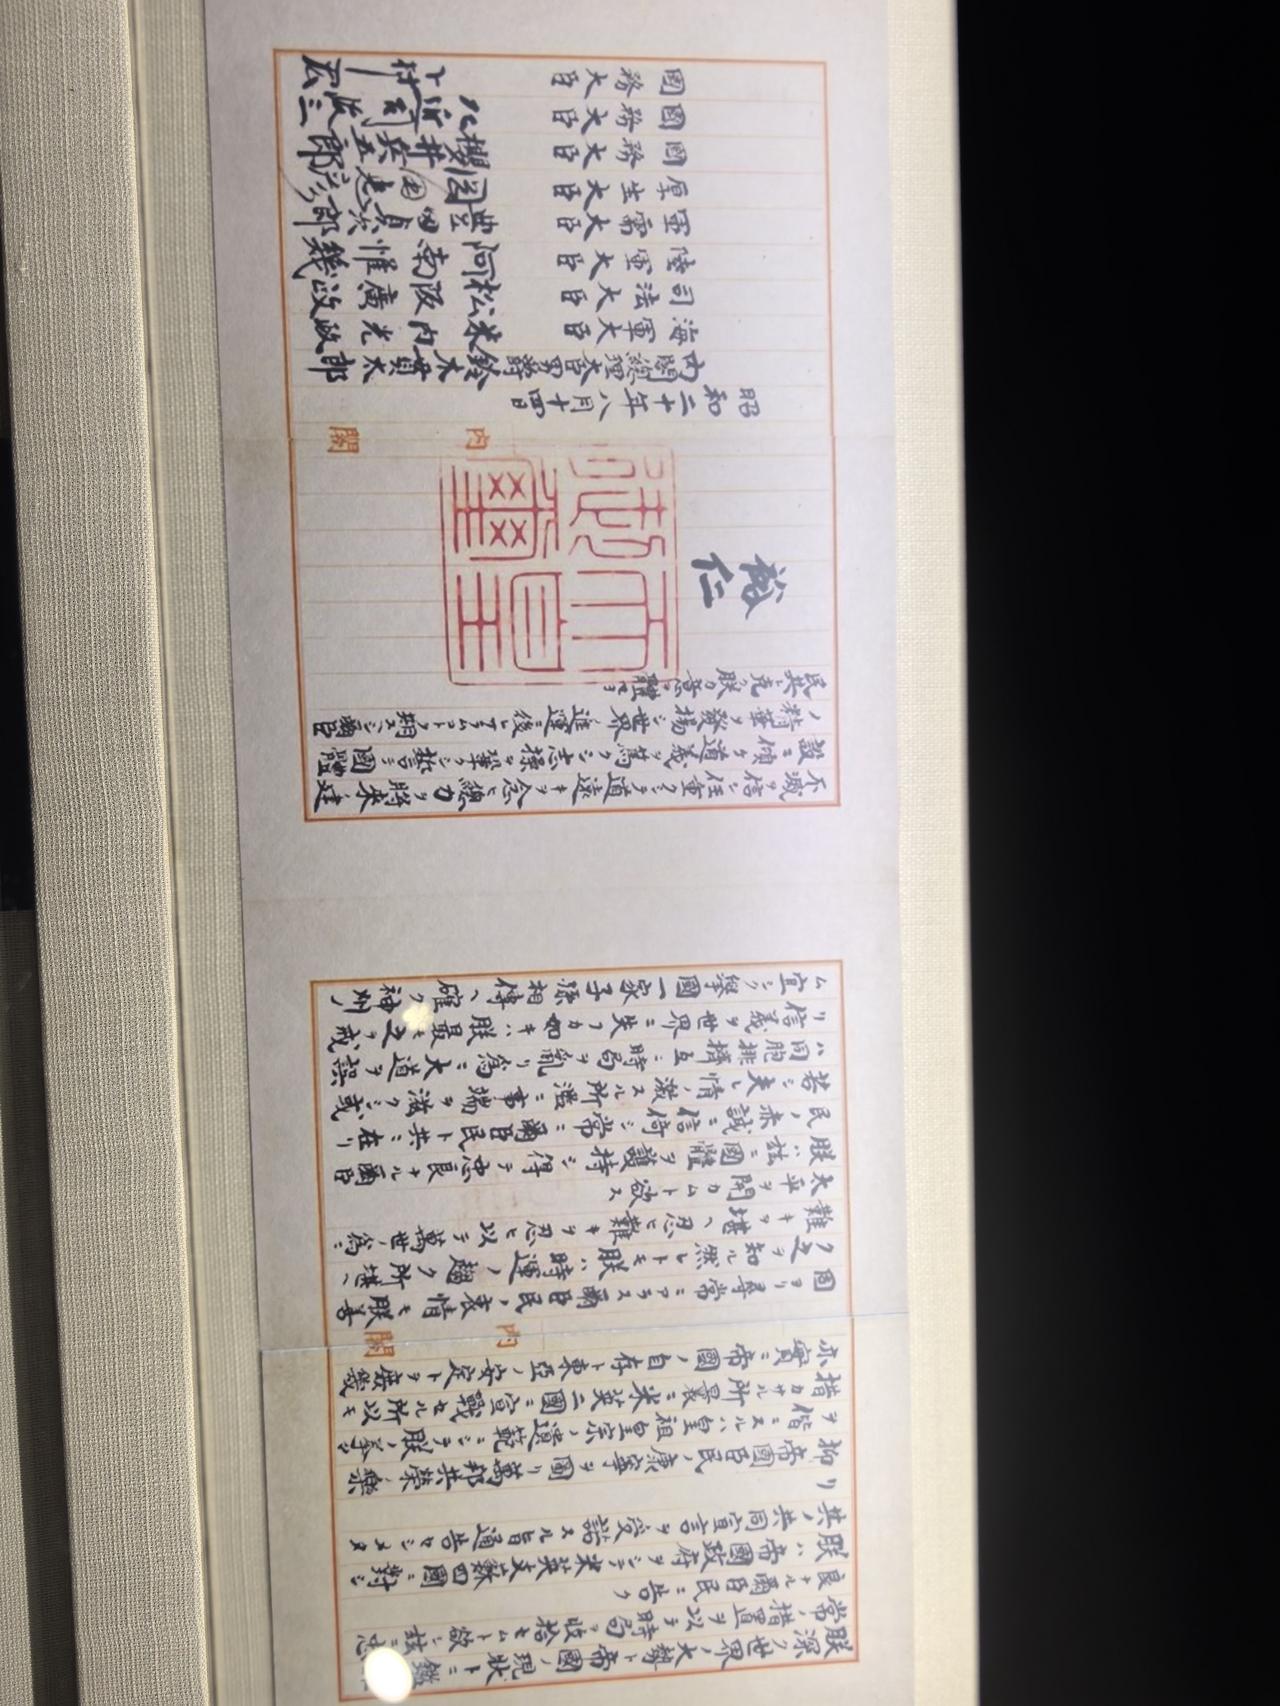 朕深ク世界ノ大勢ト帝國ノ現状トニ鑑
常ノ措置ヲ以テ時局ヲ收拾セムト欲シ茲ニ忠
良ナル爾臣民ニ告ク
朕ハ帝國政府ヲシテ米英支蘇四國ニ對シ
其ノ共同宣言ヲ受諾スル旨通告セシメタ
リ
抑帝國臣民ノ康寧ヲ圖リ萬邦共榮ノ樂
ヲ偕ニスルハ皇祖皇宗ノ遺範ニシテ朕ノ拳々
措カサル所曩ニ米英二國ニ宣戰セル所以モ
亦實ニ帝國ノ自存ト東亞ノ安定トヲ庶幾
内閣
固ヨリ尋常ニアラス爾臣民ノ衷情モ朕善
ク之ヲ知ル然レトモ朕ハ時運ノ趨ク所堪ヘ
難キヲ堪ヘ忍ヒ難キヲ忍ヒ以テ萬世ノ爲ニ
太平ヲ開カムト欲ス
朕ハ茲ニ國體ヲ護持シ得テ忠良ナル爾臣
民ノ赤誠ニ信倚シ常ニ爾臣民ト共ニ在リ
若シ夫レ情ノ激スル所濫ニ事端ヲ滋クシ或
ハ同胞排擠互ニ時局ヲ亂リ爲ニ大道ヲ誤
リ信義ヲ世界ニ失フカ如キハ朕最モ之ヲ戒
ム宜シク擧國一家子孫相傳ヘ確ク神州ノ
不滅ヲ信シ任重クシテ道遠キヲ念ヒ總力ヲ將來ノ建
設ニ傾ケ道義ヲ篤クシ志操ヲ鞏クシ誓テ國體
ノ精華ヲ發揚シ世界ノ進運ニ後レサラムコトヲ期スヘシ爾臣
民其レ克ク朕カ意ヲ體セヨ
裕仁
天皇御璽
内閣
昭和二十年八月十四日
内閣總理大臣男爵 鈴木貫太郎
海軍大臣 米内光政
司法大臣 松阪廣政
陸軍大臣 阿南惟幾
軍需大臣 豊田貞次郎
厚生大臣 岡田忠彦
國務大臣 櫻井兵五郎
國務大臣 左近司政三
國務大臣 下村宏